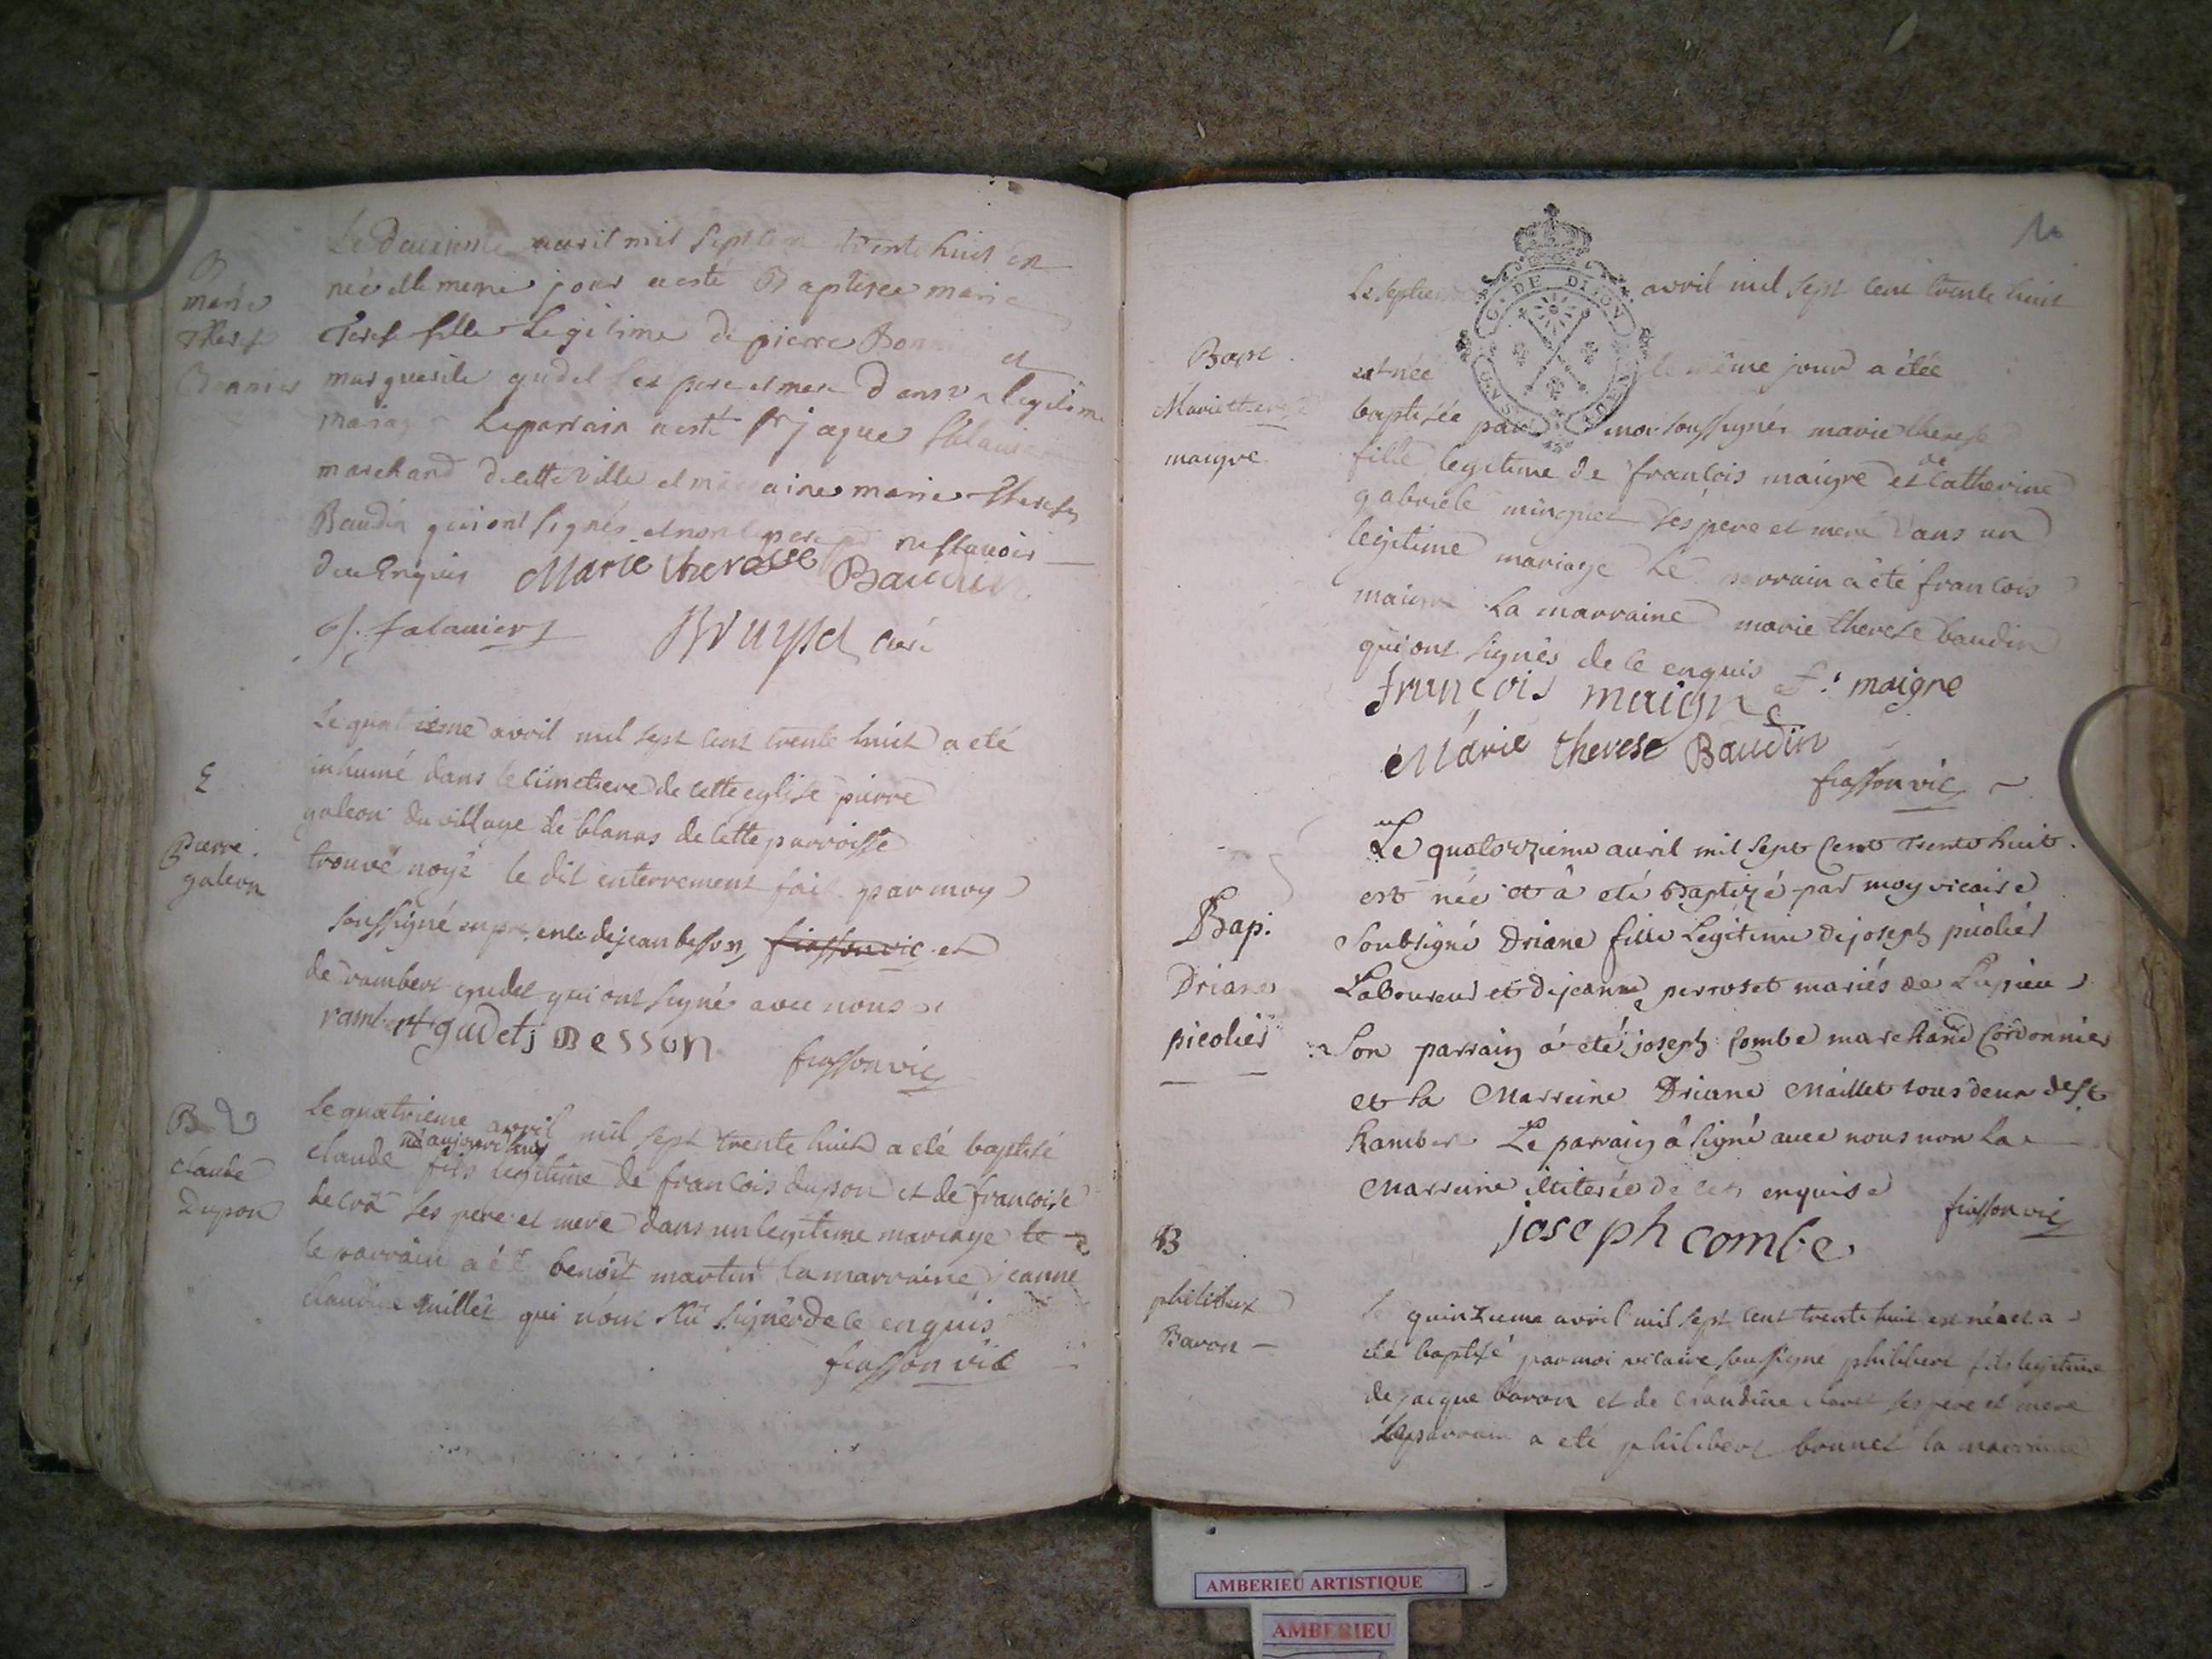 B
marie
Therese
Bonnier
Le deuxieme avril mil sept cent trente huit est
née et le meme jour a esté Baptisee marie
Terese fille Legitime de pierre et
marguerite gudet ses pere et mere dans un legitime
mariage Le parrain a esté Sr jaque
marchand de cette ville et marraine marie Therese
Baudin qui ont signés et non le pere
de ce Enquis Marie therese Baudin
curé
E
Pierre
galeon
Le quatrieme avril mil sept cent trente huit a eté
inhumé dans le cimetiere de cette eglise pierre
galeon du village de blanas de cette parroisse
trouvé noyé le dit enterrement fait par moy
soussigné en presence de jean besson, fiasson vic et
de rambert gudet qui ont signé avec nous
rambert gudet j Besson
fiasson vic
B
claude
Dupon
Le quatrieme avril mil sept trente huit a eté baptisé
né aujourd'huy
claude fils legitime de francois dupon et de francoise
ses pere et mere dans un legitime mariage le
le parrain a été benoit martin la marraine jeanne
claudine quillet qui n'ont sçu signer de ce enquis
fiasson vic
10
G. DE DIJON
Bapt
Marie therese
maigre
Le septieme avril mil sept cent trente huit
est née le même jour a étée
baptisée par moi soussignés marie therese
fille legitime de francois maigre et de Catherine
gabriele minguet ses pere et mere dans un
legitime mariage Le parrain a été francois
maigre La marraine marie therese baudin
qui ont signés de ce enquis
francois maigre f. maigre
Marie therese Baudin
fiasson vic
Bap.
Driane
picolier
Le quatorzieme avril mil sept cent trente huit
est née et â eté Baptizé par moy vicaire
Soubsigné Driane fille Legitime de joseph picolier
Laboureur et de jeanne perroset mariés de Lupieu
Son parrain â eté joseph Combe marchand Cordonnier
et la Marreine Driane Maillet tous deux de St
Rambert Le parrain â signé avec nous non la
Marreine illiterée de ce enquise
fiasson vic
joseph combe
B
philibert
Baron
Le quinzieme avril mil sept cent trente huit est né et a
été baptisé par moi vicaire soussigné philibert fils legitime
de jacque baron et de claudine ses pere et mere
Le parrain a eté philibert brunet la marraine
AMBERIEU ARTISTIQUE
AMBERIEU